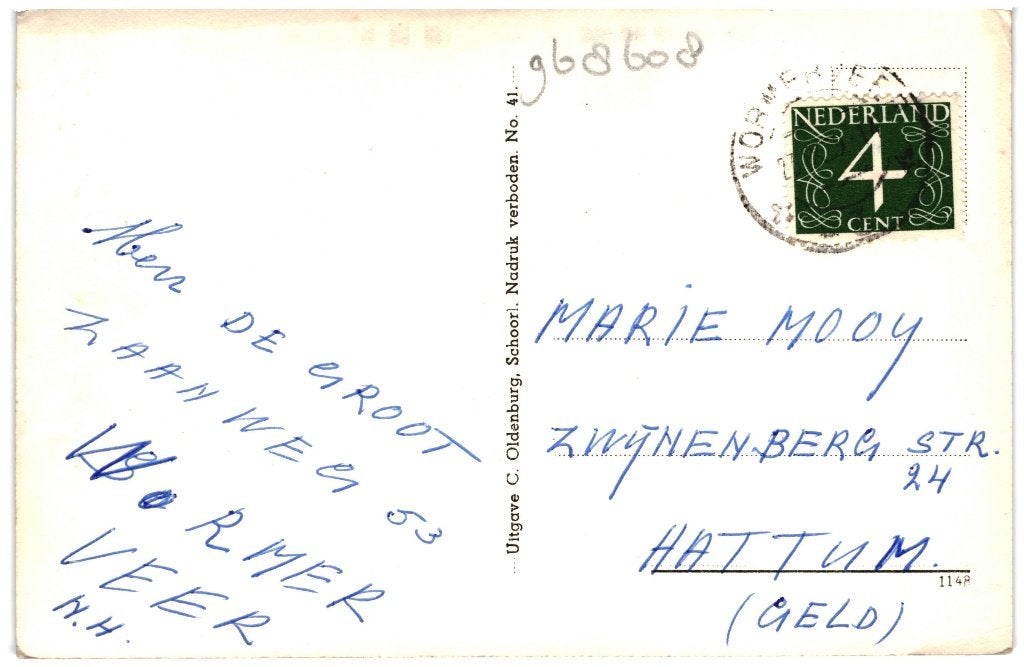 968608
WORMERVEER
NEDERLAND
4
CENT
Uitgave C. Oldenburg, Schoorl. Nadruk verboden. No. 41.
Heer
DE GROOT
ZAANWEG 53
WORMER
VEER
N.H.
MARIE MOOY
ZWIJNENBERG STR.
24
HATTUM.
1148
(GELD)